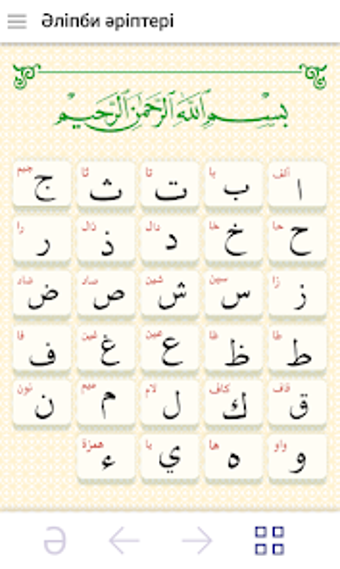 Әліпби әріптері
بسم الله الرحمن الرحيم
ألف ا با ب تا ت ثا ث جيم ج
حا ح خا خ دال د ذال ذ را ر
زا ز سين س شين ش صاد ص ضاد ض
طا ط ظا ظ عين ع غين غ فا ف
قاف ق كاف ك لام ل ميم م نون ن
واو و ها ه يا ي همزة ء
Ә